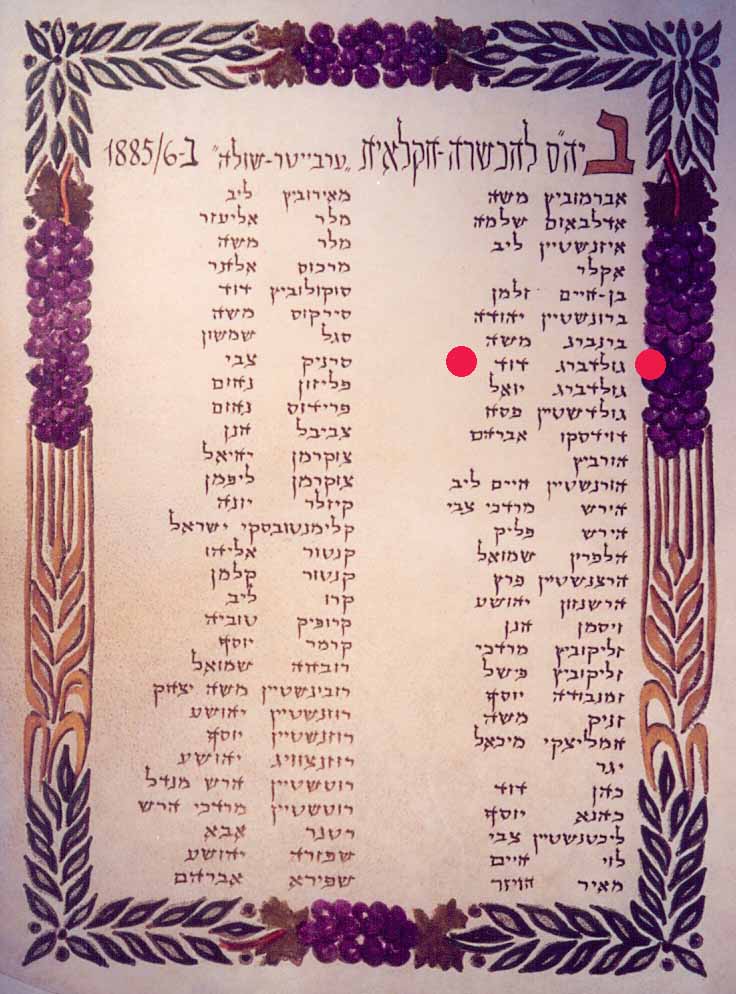 ביה"ס להכשרה-חקלאית „ערבייטר-שולה" ב-1885/6
אברמוביץ משה
אדלבאום שלמה
איזנשטיין ליב
אקלר
בן-חיים זלמן
ברונשטיין יהודה
ברנברג משה
גולדברג דוד
גולדברג יואל
גולדשטיין פסח
דוידסקו אברהם
הורביץ
הורנשטיין חיים ליב
הירש מרדכי צבי
הירש פליק
הלפרין שמואל
הרצנשטיין פרץ
הרשנזון יהושע
ויסמן חנן
זליקוביץ מרדכי
זליקוביץ פישל
זמנבודה יוסף
זניק משה
חמליצקי מיכאל
יגר
כהן דוד
כהנא יוסף
ליכטנשטיין צבי
לוי חיים
מאיר הויזר
מאירוביץ ליב
מלר אליעזר
מלר משה
מרכוס אלתר
סוקולוביץ דוד
סירקוס משה
סגל שמשון
סרניק צבי
פליזון נחום
פרידוס נחום
צביבל חנן
צוקרמן יחיאל
צוקרמן ליפמן
קיזלר יונה
קלימנטובסקי ישראל
קנטור אליהו
קנטור קלמן
קרו ליב
קרופיק טוביה
קרמר יוסף
רובחה שמואל
רובינשטיין משה יצחק
רוזנשטיין יהושע
רוזנשטיין יוסף
רוזנצווייג יהושע
רוטשטיין הרש מנדל
רוטשטיין מרדכי הרש
רטנר אבא
שפזרה יהושע
שפירא אברהם